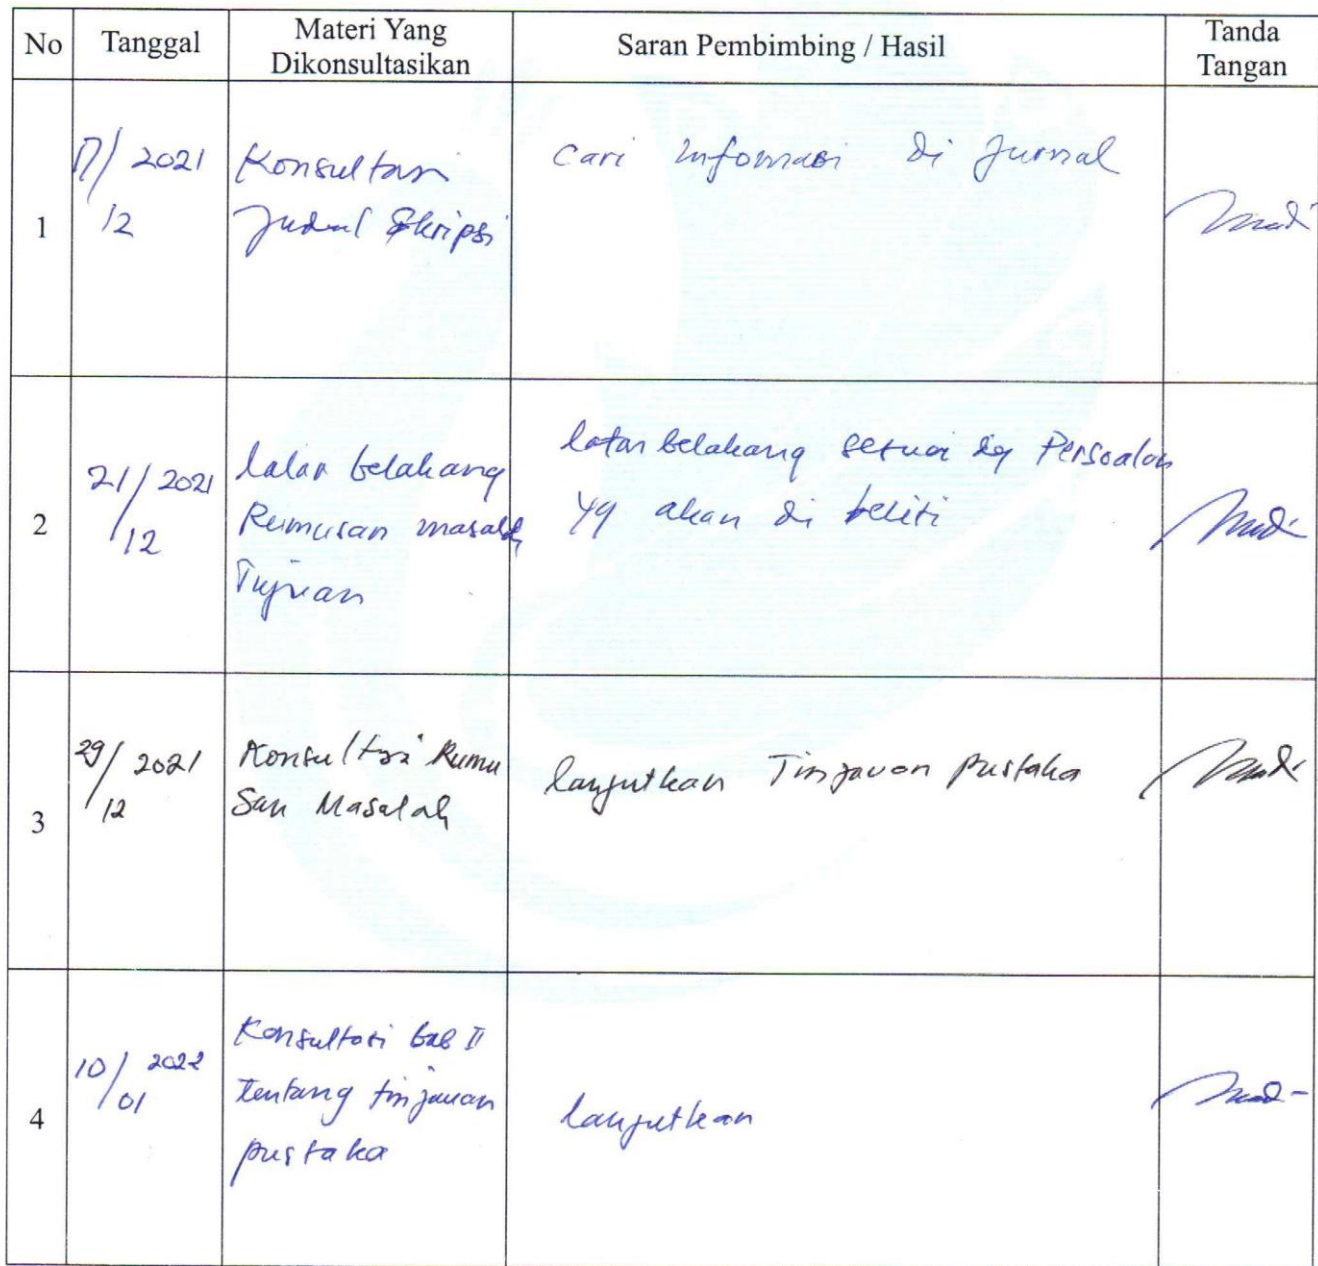 No Tanggal Materi Yang Dikonsultasikan Saran Pembimbing / Hasil Tanda Tangan
1
17/12 2021
Konsultasi
Judul Skripsi
Cari Informasi di Jurnal
2
21/12 2021
latar belakang
Rumusan masalah
Tujuan
latar belakang sesuai dg Persoalan
yg akan di teliti
3
29/12 2021
Konsultasi Rumu
San Masalah
lanjutkan Tinjauan pustaka
4
10/01 2022
Konsultasi bab II
tentang tinjauan
pustaka
lanjutkan